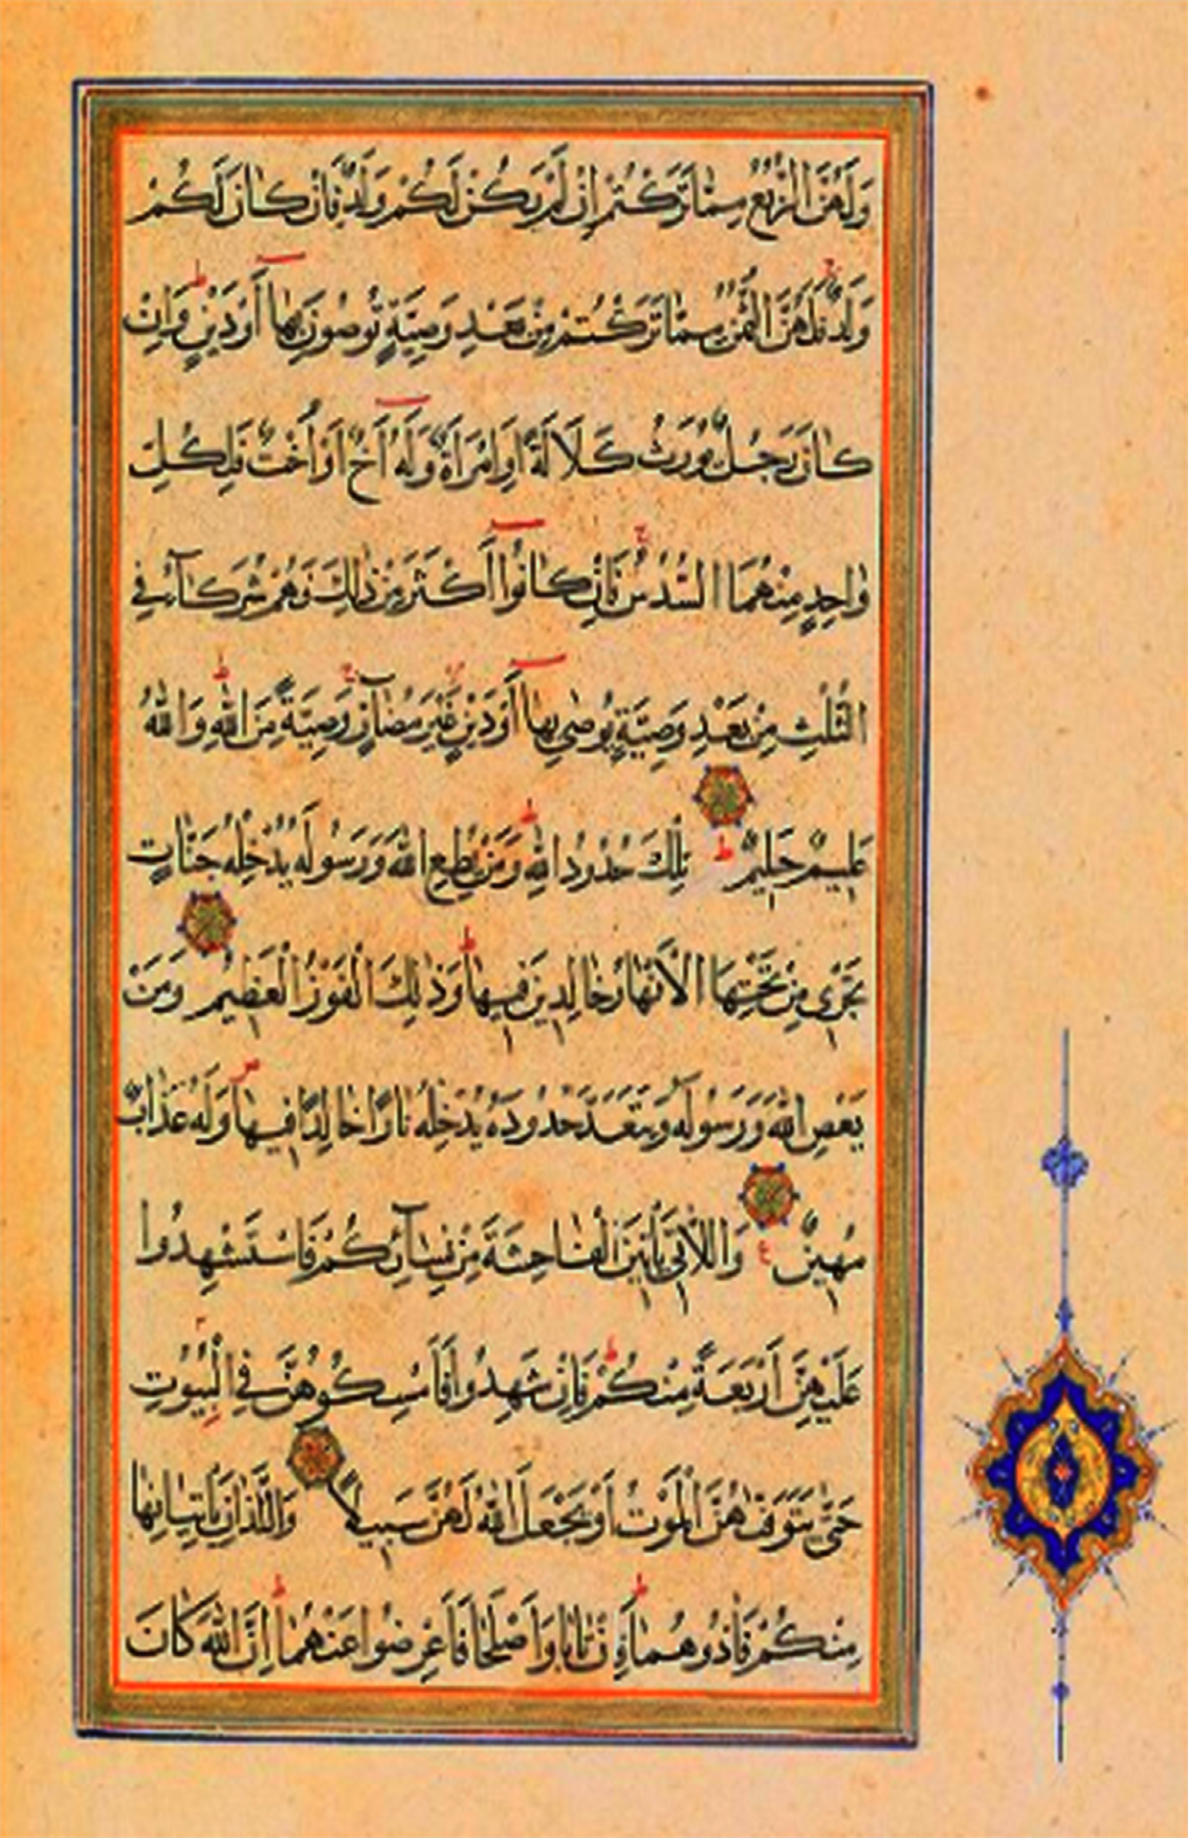 وَلَهُنَّ الرُّبُعُ مِمَّا تَرَكْتُمْ اِنْ لَمْ يَكُنْ لَكُمْ وَلَدٌ فَاِنْ كَانَ لَكُمْ
وَلَدٌ فَلَهُنَّ الثُّمُنُ مِمَّا تَرَكْتُمْ مِنْ بَعْدِ وَصِيَّةٍ تُوصُونَ بِهَا أَوْ دَيْنٍ ط وَاِنْ
كَانَ رَجُلٌ يُورَثُ كَلَالَةً اَوِ امْرَاَةٌ وَلَهُ أَخٌ اَوْ اُخْتٌ فَلِكُلِّ
وَاحِدٍ مِنْهُمَا السُّدُسُ ج فَاِنْ كَانُوا أَكْثَرَ مِنْ ذٰلِكَ فَهُمْ شُرَكَآءُ فِي
الثُّلُثِ مِنْ بَعْدِ وَصِيَّةٍ يُوصٰى بِهَا أَوْ دَيْنٍ غَيْرَ مُضَآرٍّ ج وَصِيَّةً مِنَ اللّٰهِ ط وَاللّٰهُ
عَلِيمٌ حَلِيمٌ ط تِلْكَ حُدُودُ اللّٰهِ ط وَمَنْ يُطِعِ اللّٰهَ وَرَسُولَهُ يُدْخِلْهُ جَنَّاتٍ
تَجْرِي مِنْ تَحْتِهَا الْاَنْهَارُ خَالِدِينَ فِيهَا ط وَذٰلِكَ الْفَوْزُ الْعَظِيمُ وَمَنْ
يَعْصِ اللّٰهَ وَرَسُولَهُ وَيَتَعَدَّ حُدُودَهُ يُدْخِلْهُ نَارًا خَالِدًا فِيهَا ص وَلَهُ عَذَابٌ
مُهِينٌ ع وَاللَّاتِي يَأْتِينَ الْفَاحِشَةَ مِنْ نِسَآئِكُمْ فَاسْتَشْهِدُوا
عَلَيْهِنَّ اَرْبَعَةً مِنْكُمْ ط فَاِنْ شَهِدُوا فَاَمْسِكُوهُنَّ فِي الْبُيُوتِ
حَتّٰى يَتَوَفّٰهُنَّ الْمَوْتُ اَوْ يَجْعَلَ اللّٰهُ لَهُنَّ سَبِيلًا وَاللَّذَانِ يَأْتِيَانِهَا
مِنْكُمْ فَاٰذُوهُمَا ط فَاِنْ تَابَا وَاَصْلَحَا فَاَعْرِضُوا عَنْهُمَا ط اِنَّ اللّٰهَ كَانَ